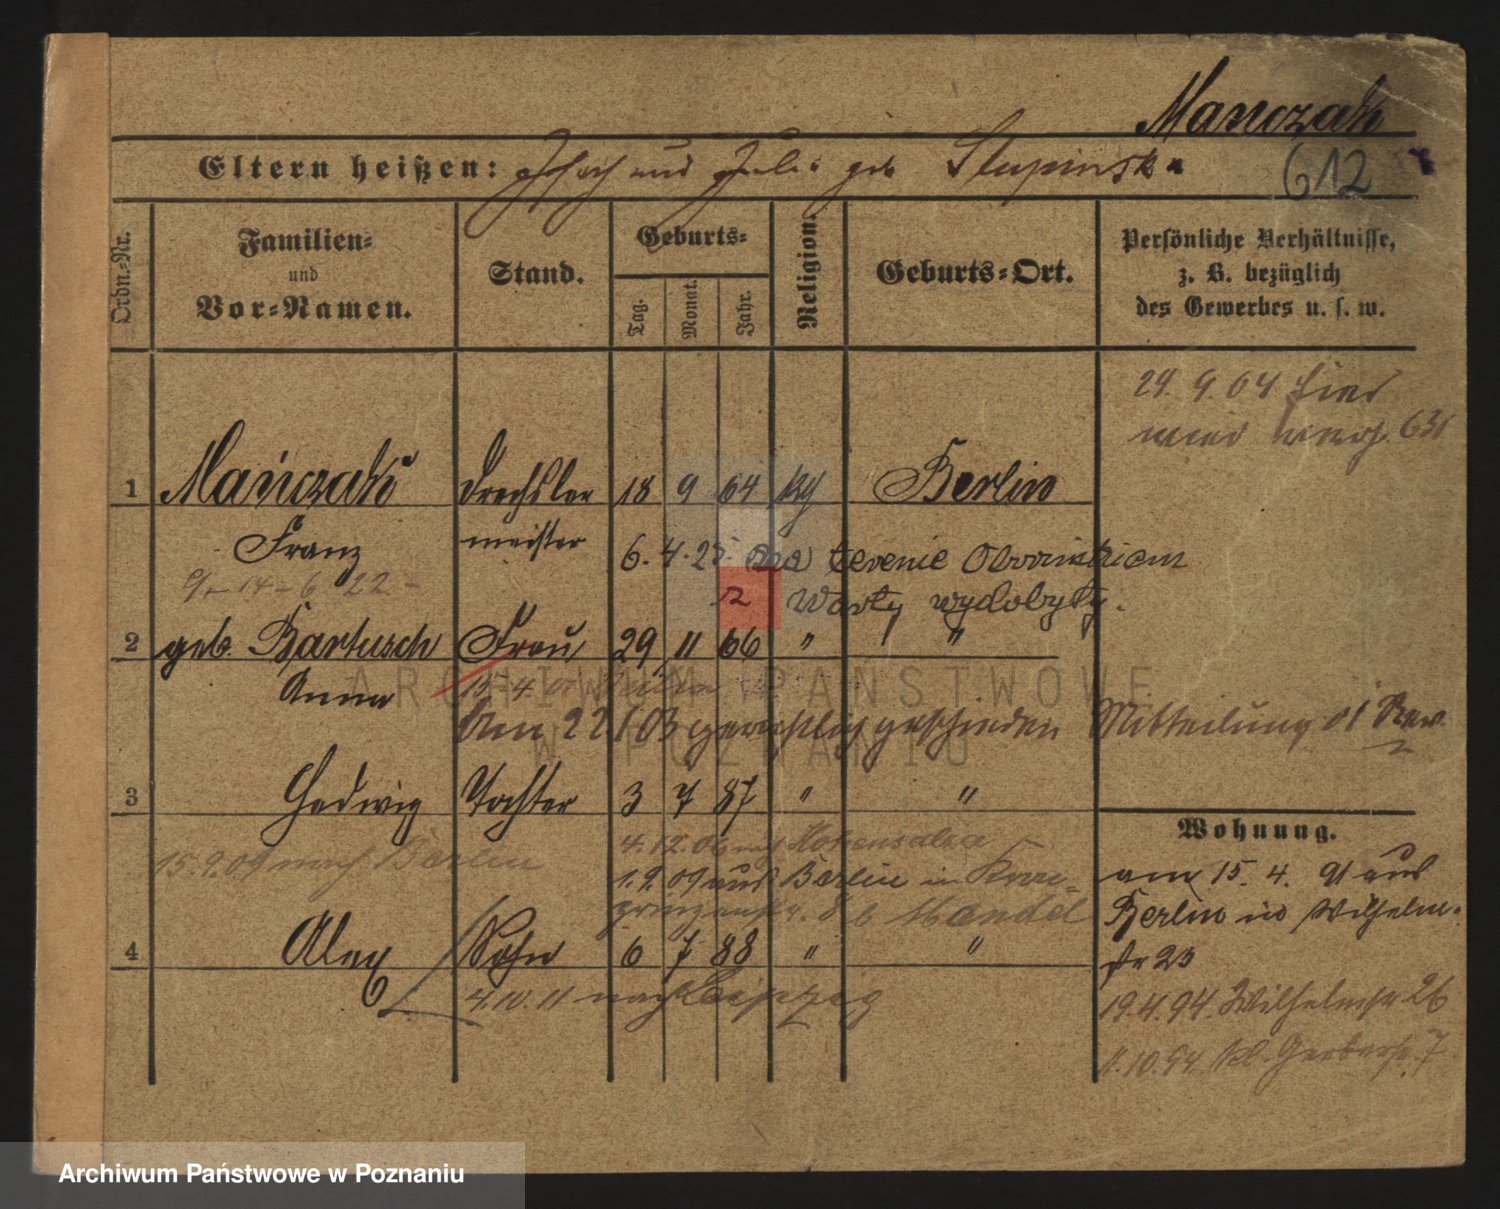 Mańczak
Eltern heißen: und geb Slupinska
612
Ordn.-Nr.
Familien- und Vor-Namen.
Stand.
Geburts-
Tag. Monat. Jahr.
Religion.
Geburts-Ort.
Persönliche Verhältnisse,
z. B. bezüglich
des Gewerbes u. s. w.
29. 9. 04 hier
631
1 Mańczak Drechsler 18 9 64 Berlin
Franz meister
6. 4. 25. na terenie
z Warty wydobyty.
14-6 22-
2 geb. Bartusch Frau 29 11 66 " "
Anna 15 4
Am 22 1 03 gerichtlich geschieden Mitteilung
3 Hedwig Tochter 3 7 87 " "
15.9.09 nach Berlin
4.12.06 nach Hohensalza
1.9.09 aus Berlin in Kron-
prinzenstr. b Mandel
4 Alex Sohn 6 7 88 " "
4.10.11 nach Leipzig
Wohnung.
am 15. 4. 91 aus
Berlin in Wilhelm-
str 23
19.4.94. Wilhelmstr 26
1.10.94. Kl. Gerberstr. 7
ARCHIWUM PAŃSTWOWE
W POZNANIU
Archiwum Państwowe w Poznaniu